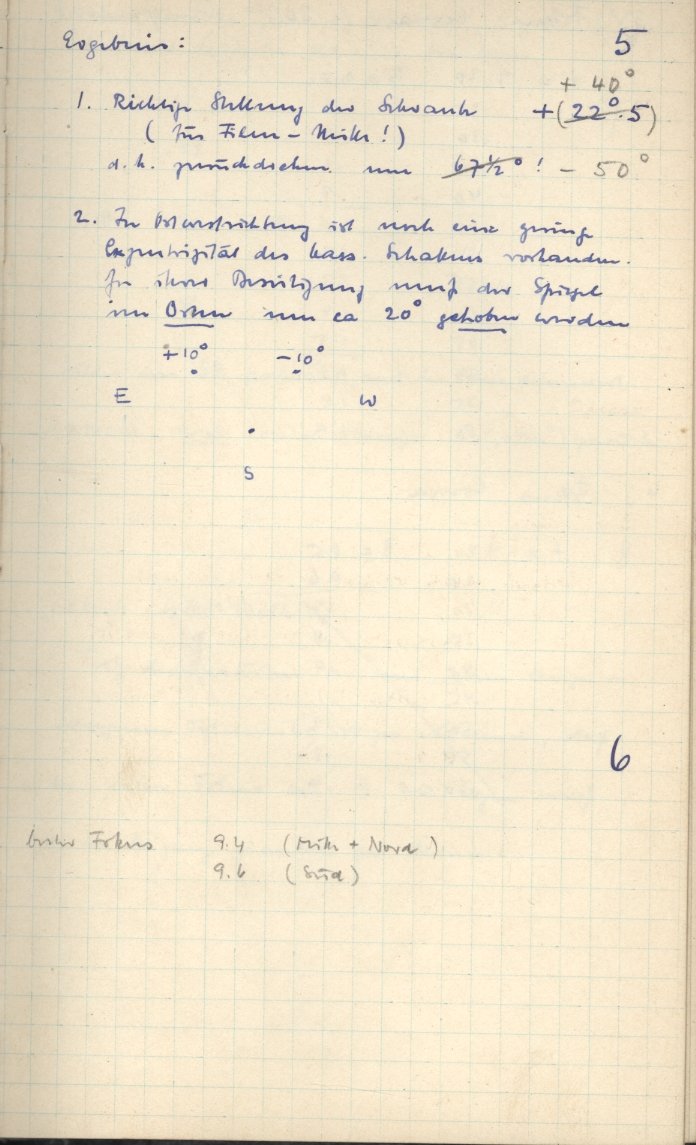 Ergebnis: 5
+ 40°
1. Richtige Stellung der Schraube +(22°.5)
(für Film - Mitte!)
d.h. zurückdrehen um 67½°! - 50°
2. In Ostwestrichtung ist noch eine geringe
Exzentrizität des kass. Schattens vorhanden.
Zu ihrer Beseitigung muß der Spiegel
im Osten um ca 20° gehoben werden
+10° -10°
E W
S
6
bester Fokus 9.4 (Mitte + Nord)
9.6 (Süd)